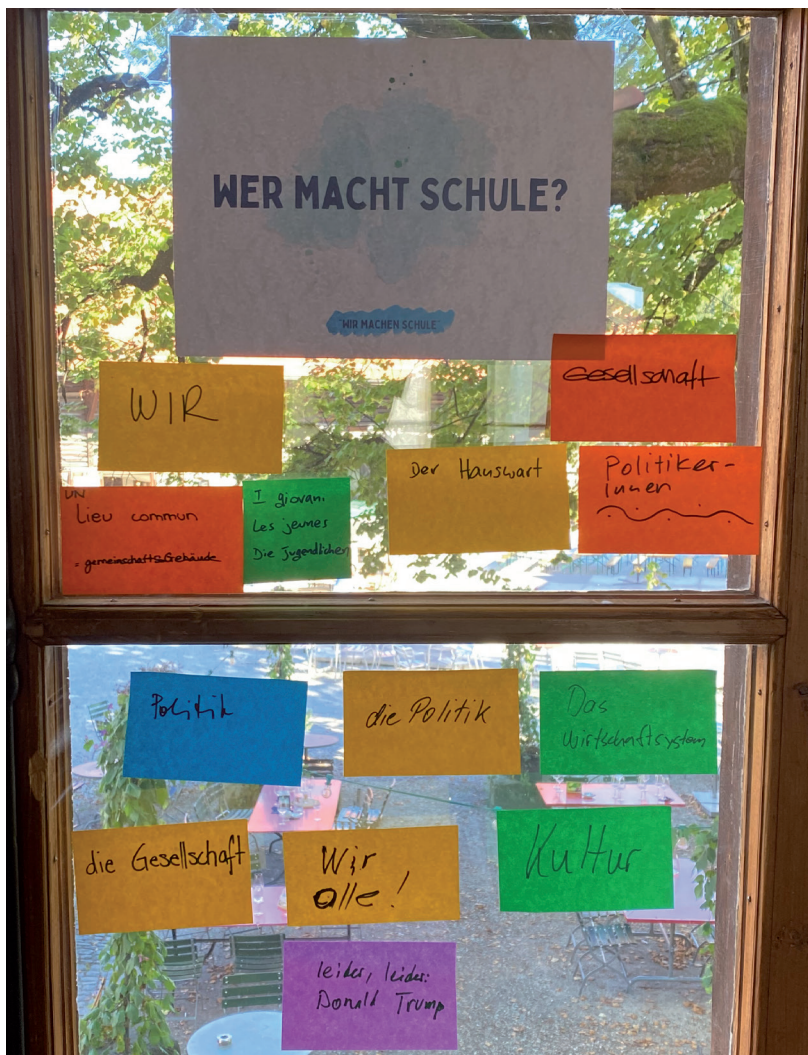 WER MACHT SCHULE?
"WIR MACHEN SCHULE"
WIR
Gesellschaft
Der Hauswart
Politiker-
innen
UN
Lieu commun
= gemeinschafts-Gebäude
I giovani
Les jeunes
Die Jugendlichen
Politik
die Politik
Das
Wirtschaftsystem
die Gesellschaft
Wir
alle!
Kultur
leider, leider:
Donald Trump